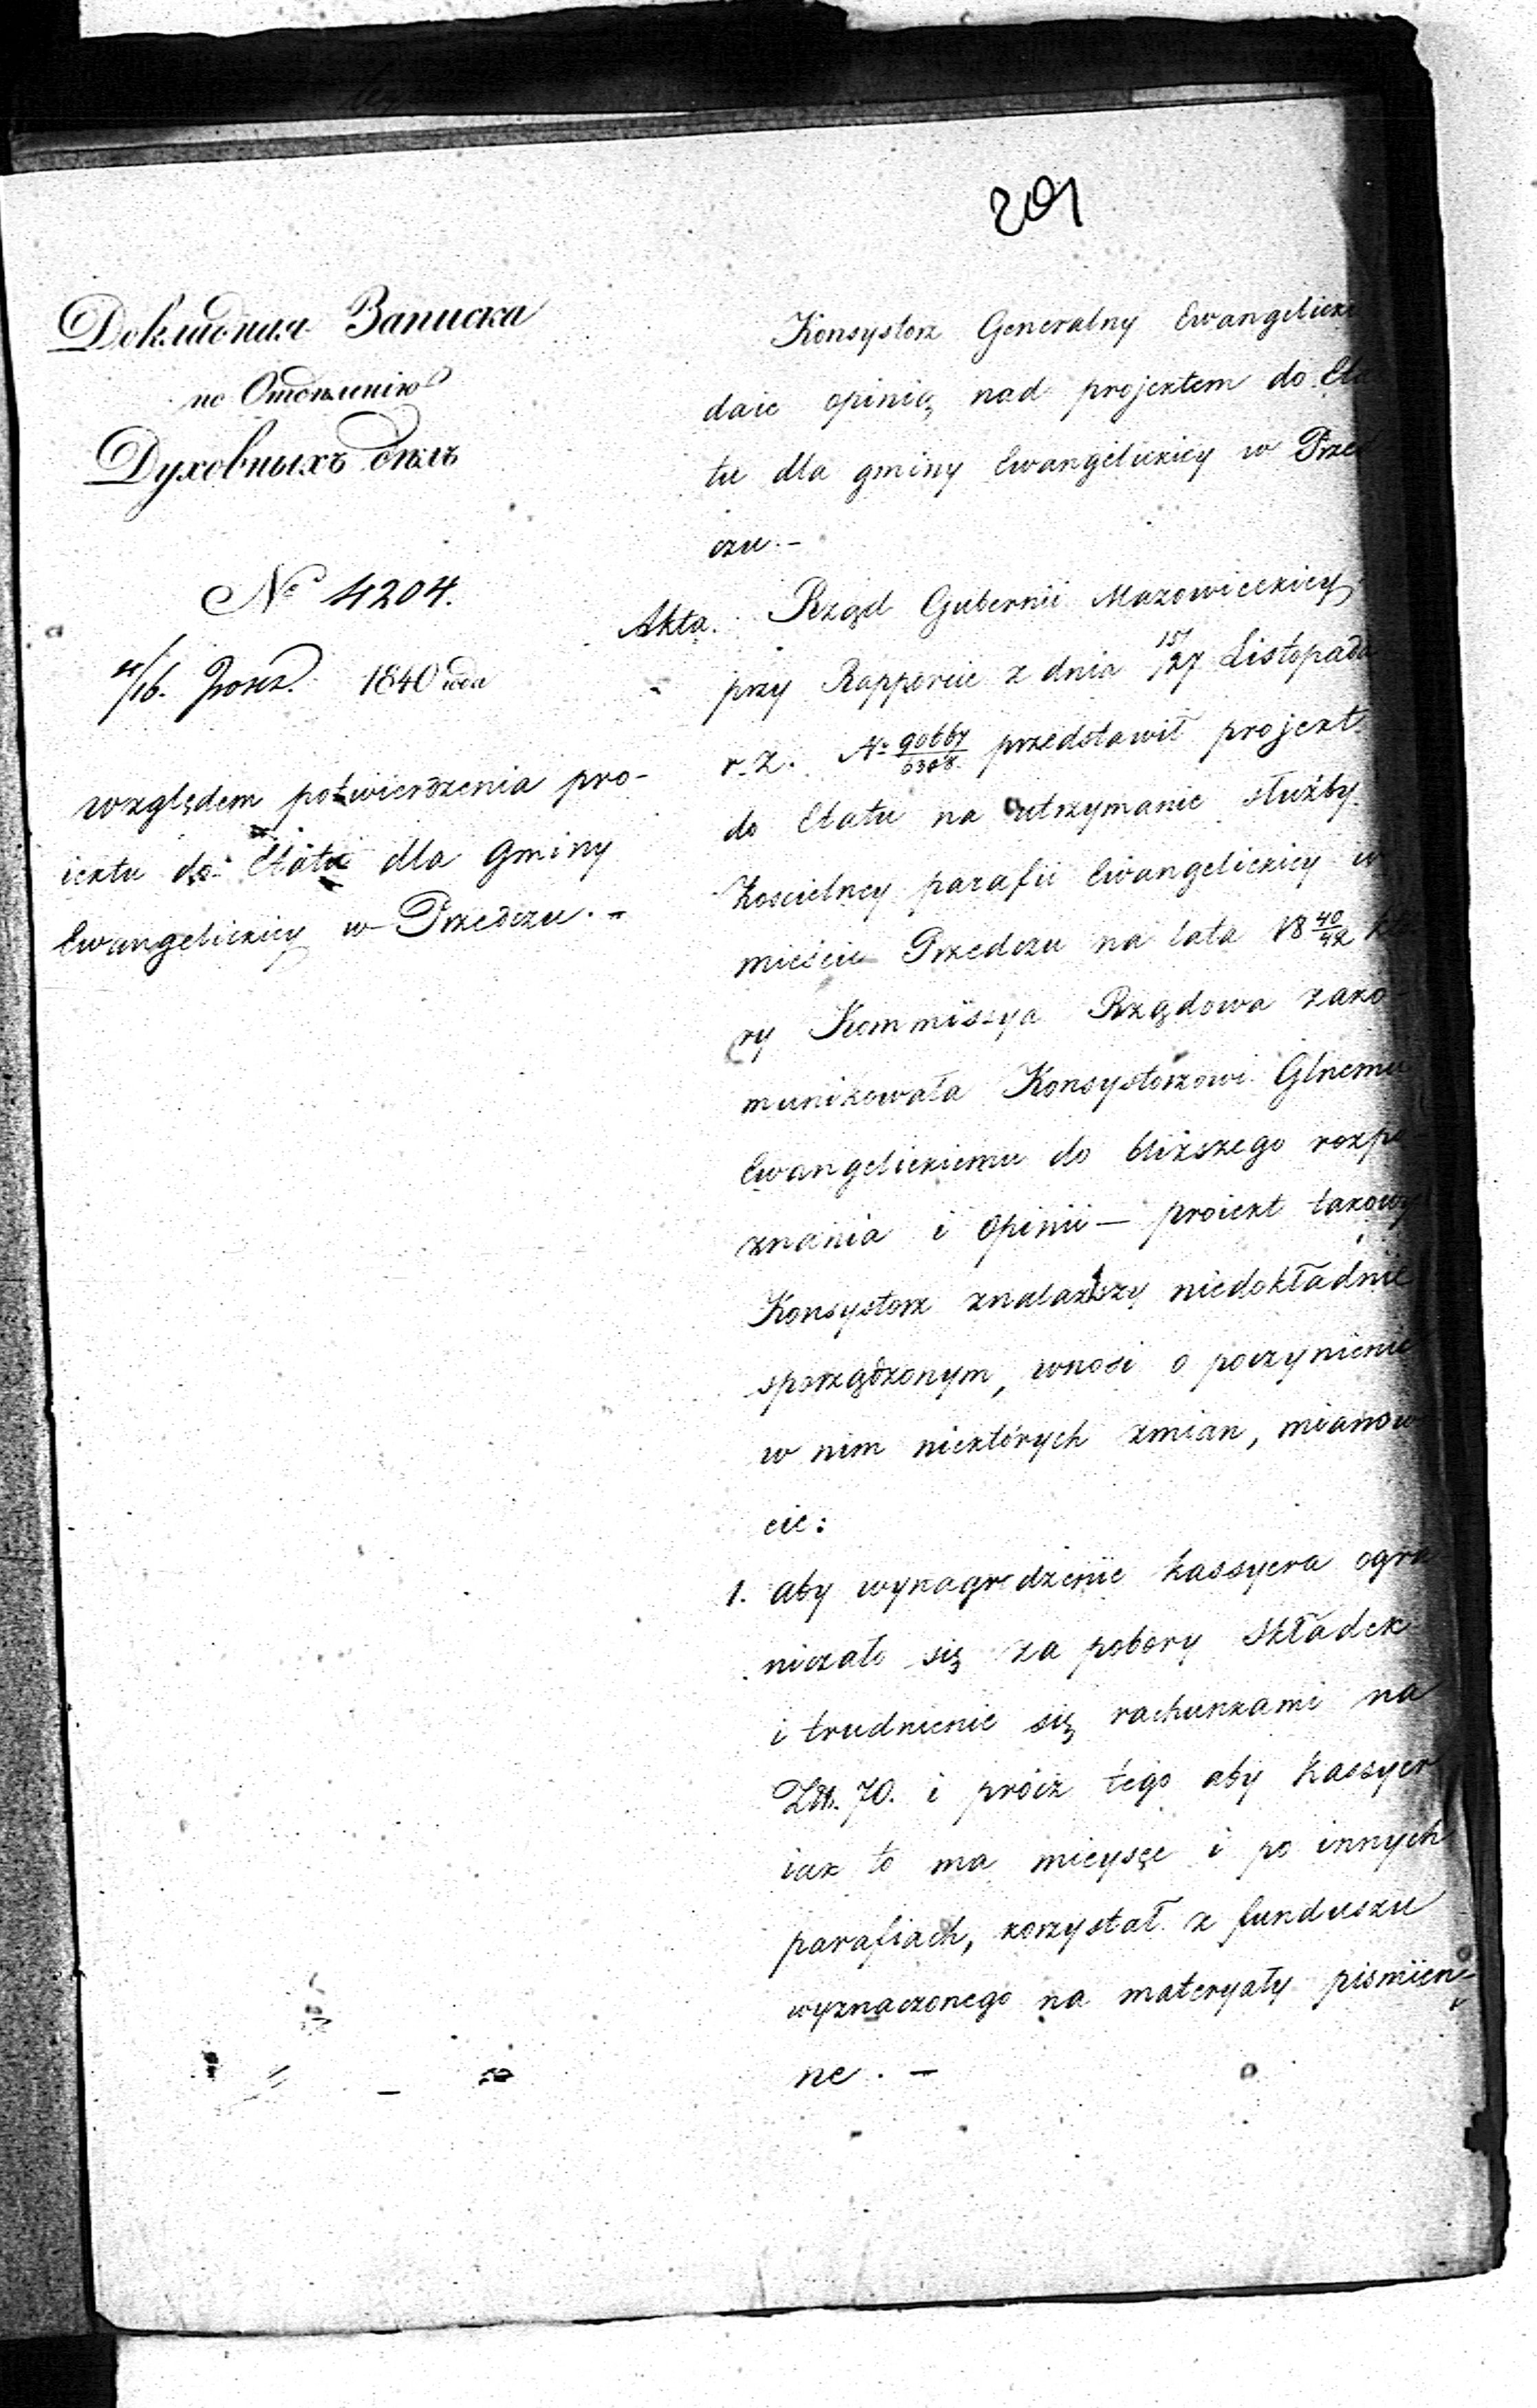 201
Докладная Записка
по Отдѣленію
Духовныхъ дѣлъ
№ 4204.
4/16. 1840 года
względem potwierdzenia pro-
iektu do Etatu dla Gminy
Ewangelickiey w Przedczu. -
Konsystorz Generalny Ewangelicki
daie opinią nad projektem do Eta
tu dla gminy Ewangelickiey w Przed
czu. -
Akta. Rząd Gubernii Mazowieckiey
przy Rapporcie z dnia 15/27 Listopada
r. z. N° 90667/6308 przedstawił projekt
do Etatu na utrzymanie służby
Kościelney parafii Ewangelickiey w
mieście Przedczu na lata 18 40/42 któ
ry Kommissya Rządowa zako-
munikowała Konsystorzowi Glnemu
Ewangelickiemu do bliższego rozpo-
znania i Opinii — proiekt takowy
Konsystorz znalazłszy niedokładnie
sporządzonym, wnosi o poczynienie
w nim niektórych zmian, mianowi
cie:
1. aby wynagrodzenie kassyera ogra
niczało się za pobory Składek
i trudnienie się rachunkami na
Złt. 70. i prócz tego aby Kassyer
iak to ma mieysce i po innych
parafiach, korzystał z funduszu
wyznaczonego na materyały pismien-
ne. -